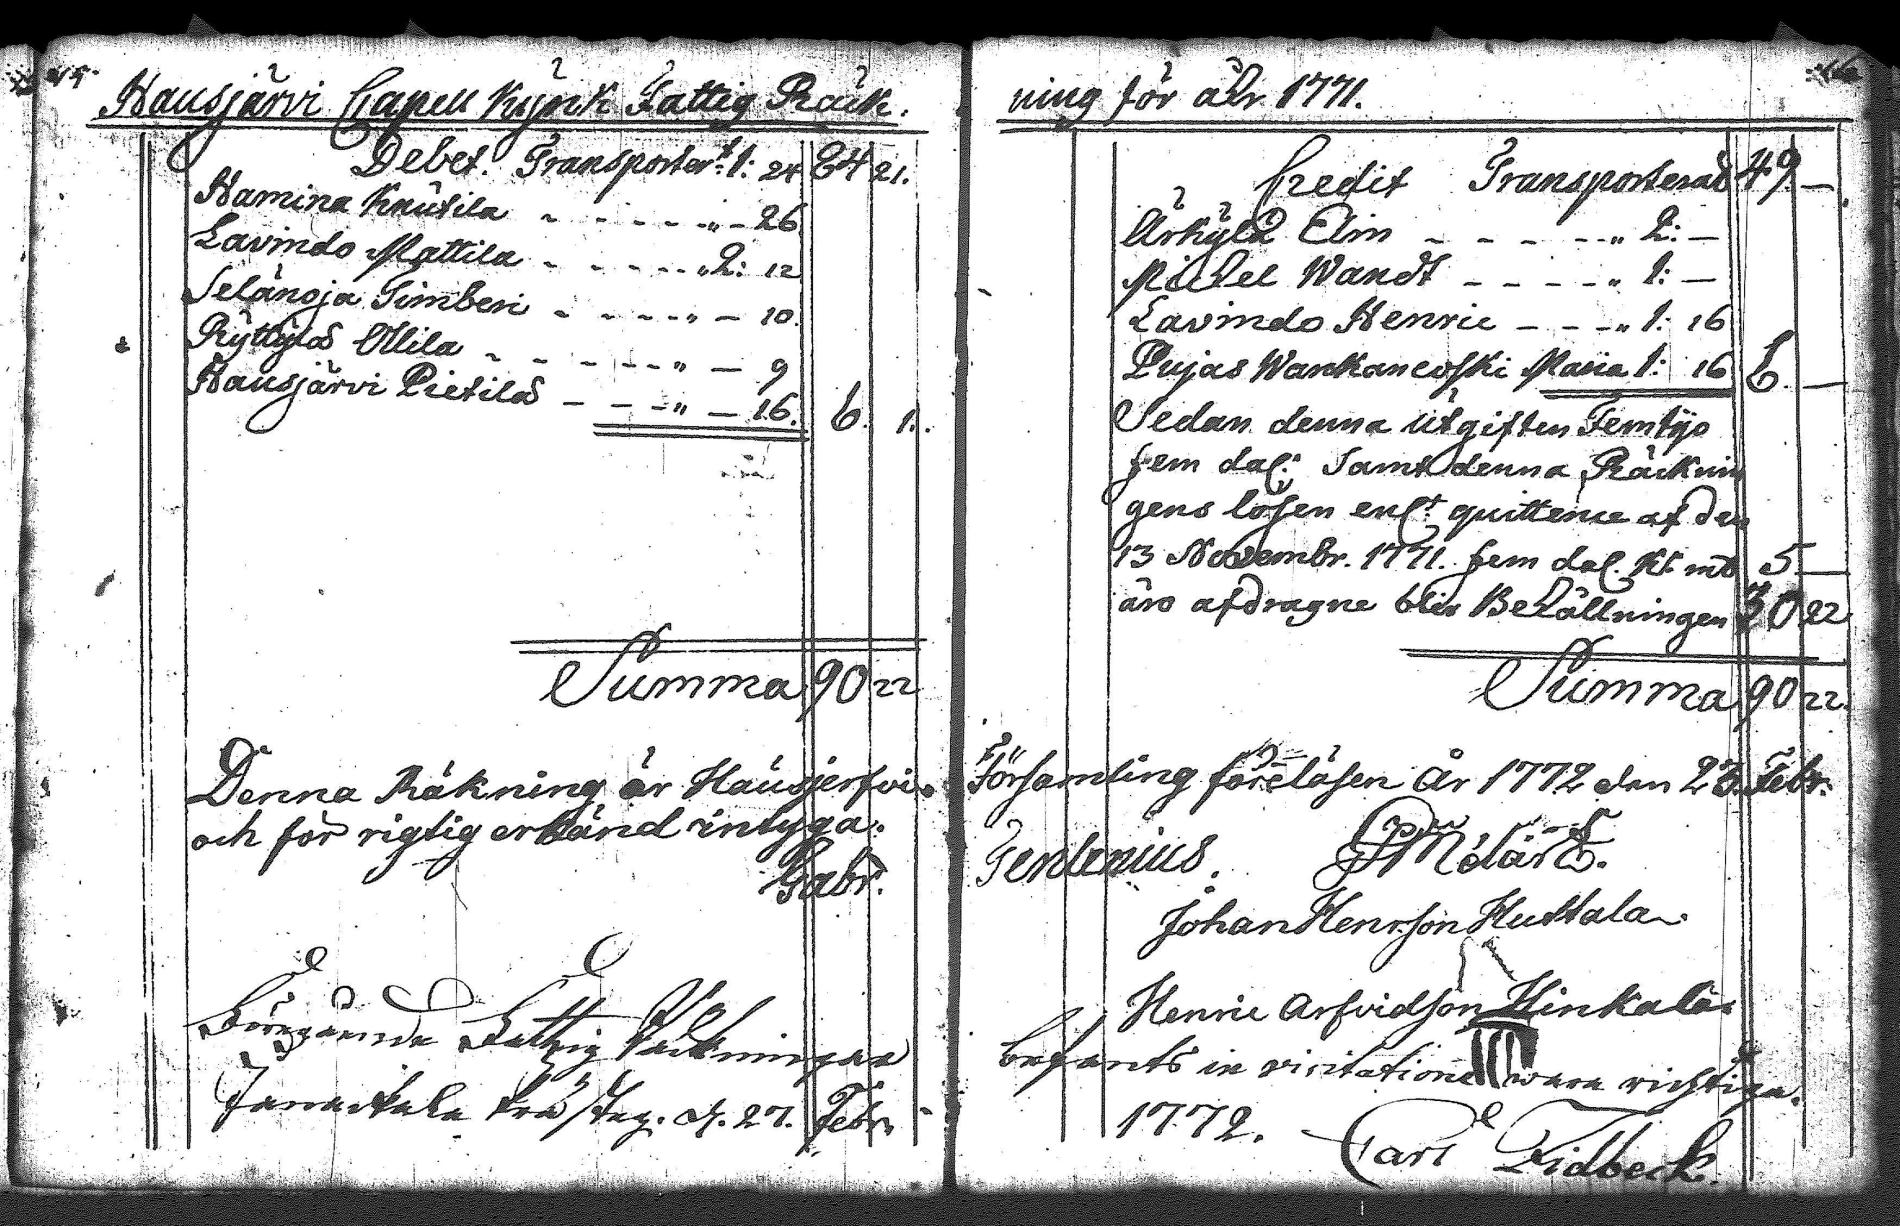 Hausjärvi Capell Kyrck Fattig Räck.
Debet. Transporter.t 1: 24 84 21.
Hamina Knutila - - - - - „ - 26
Lavindo Mattila - - - - - „ 2: 12
Selänoja Timberi - - - - „ - 10.
Ryttylä Ollila - - - - - „ - 9
Hausjärvi Pietilä - - - „ - 16. 6. 1.
Summa 90 22
Denna Räkning är Hausjerfvi
och för rigtig erkänd intyga.
Gabr.
Fattig Räckningar
Janackala Febr.
ning för åhr 1771.
Credit Transporterad 49 -
Arkylä Elin - - - - - „ 2: -
Michel Wandt - - - - - „ 1: -
Lavindo Henric - - - „ 1: 16
Pujas Wankancoski Maria 1: 16 6. -
Sedan denna utgiften Femtijo
fem dal: samt denna Räcknin
gens lösen enl.t quittence af den
13 Novembr. 1771. fem dal. Kt mt 5 -
äro afdragne blir Behållningen 30 22
Summa 90 22.
Församling föreläsen År 1772 den 23. Febr.
Johan Henrsson Huttala
Henric Arfvidsson Hinkala
befants in visitatione wara richtiga.
1772.
Carl Lidbeck.